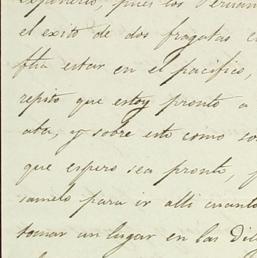 pues los Peruan
el exito de dos fragatas c
estar en el pacifico,
repito que estoy pronto a
y sobre esto como so
que espero sea pronto,
para ir alli cuanto
tomar un lugar en las Dil